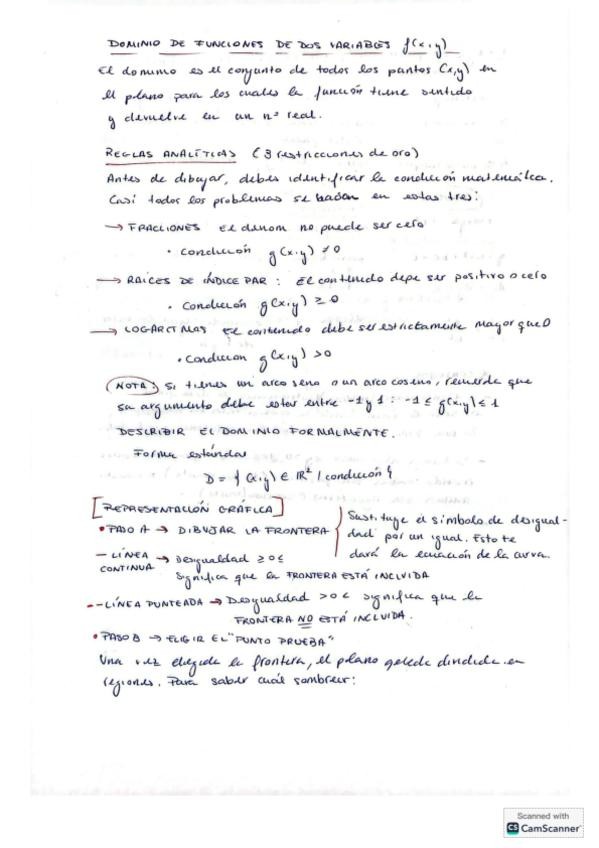 DOMINIO DE FUNCIONES DE DOS VARIABLES f(x,y)
El dominio es el conjunto de todos los puntos (x,y) en
el plano para los cuales la función tiene sentido
y devuelve en un nº real.
REGLAS ANALÍTICAS (3 restricciones de oro)
Antes de dibujar, debes identificar la condición matemática.
Casi todos los problemas se basan en estas tres:
→ FRACCIONES El denom no puede ser cero
• Condición g(x,y) ≠ 0
→ RAÍCES DE ÍNDICE PAR: El contenido debe ser positivo o cero
• Condición g(x,y) ≥ 0
→ LOGARITMOS El contenido debe ser estrictamente mayor que 0
• Condición g(x,y) > 0
NOTA: Si tienes un arco seno o un arco coseno, recuerda que
su argumento debe estar entre -1 y 1: -1 ≤ g(x,y) ≤ 1
DESCRIBIR EL DOMINIO FORMALMENTE.
Forma estándar
D = { (x,y) ∈ IR² / condición }
[REPRESENTACIÓN GRÁFICA]
• PASO A → DIBUJAR LA FRONTERA
Sustituye el símbolo de desigual-
dad por un igual. Esto te
dará la ecuación de la curva.
— LÍNEA CONTINUA → Desigualdad ≥ o ≤
Significa que la FRONTERA ESTÁ INCLUIDA
-- LÍNEA PUNTEADA → Desigualdad > o < significa que la
FRONTERA NO ESTÁ INCLUIDA.
• PASO B → ELIGIR EL "PUNTO PRUEBA"
Una vez elegida la frontera, el plano queda dividido en
regiones. Para saber cuál sombrear:
Scanned with
CS CamScanner